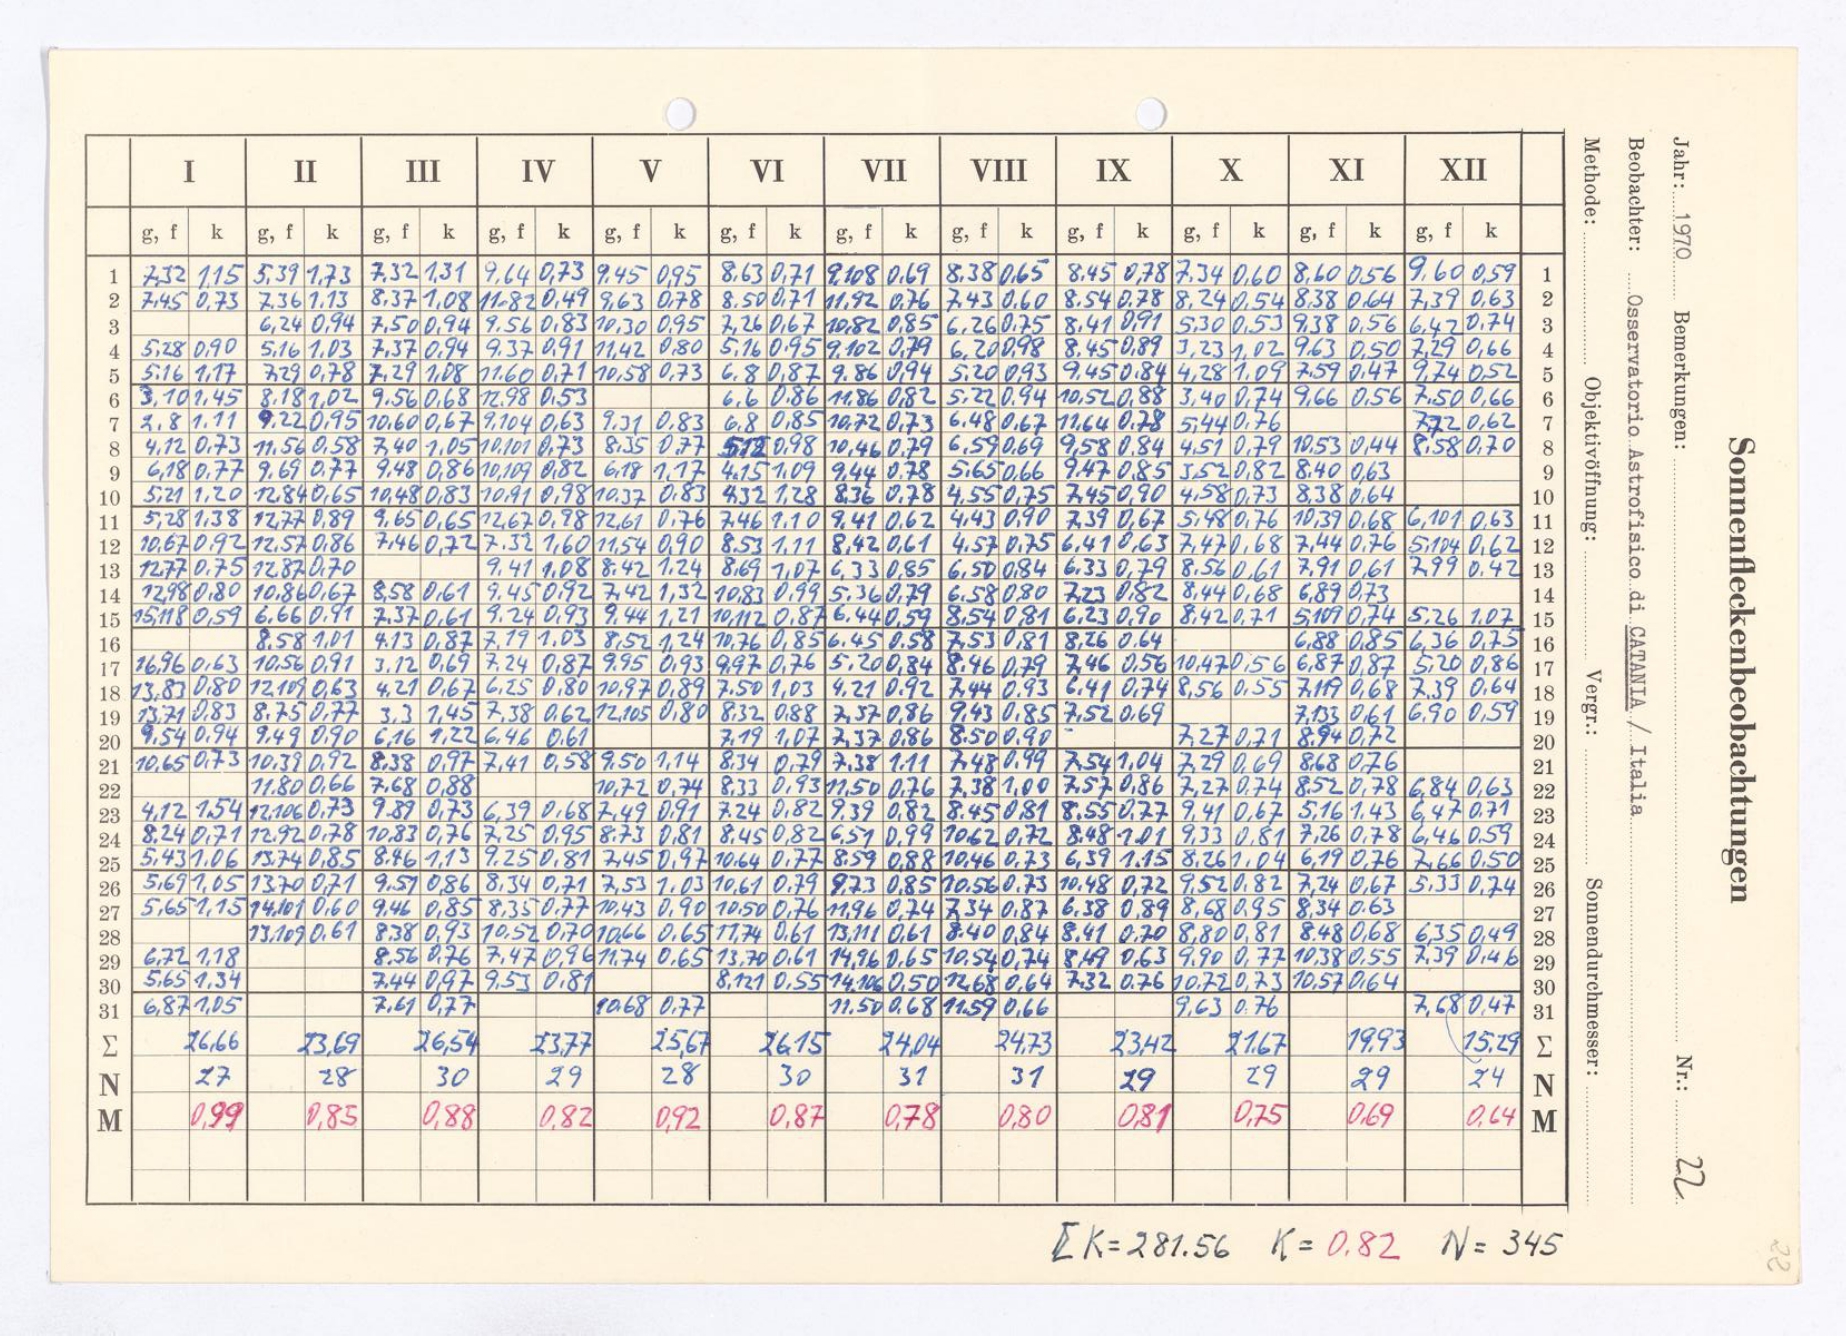 Sonnenfleckenbeobachtungen
Jahr: 1970 Bemerkungen: Nr.: 22
Beobachter: Osservatorio Astrofisico di CATANIA / Italia
Methode: Objektivöffnung: Vergr.: Sonnendurchmesser:
I II III IV V VI VII VIII IX X XI XII
g, f k g, f k g, f k g, f k g, f k g, f k g, f k g, f k g, f k g, f k g, f k g, f k
1 7,32 1,15 5,39 1,73 7,32 1,31 9,64 0,73 9,45 0,95 8,63 0,71 9,108 0,69 8,38 0,65 8,45 0,78 7,34 0,60 8,60 0,56 9,60 0,59 1
2 7,45 0,73 7,36 1,13 8,37 1,08 11,82 0,49 9,63 0,78 8,50 0,71 11,92 0,76 7,43 0,60 8,54 0,78 8,24 0,54 8,38 0,64 7,39 0,63 2
3 6,24 0,94 7,50 0,94 9,56 0,83 10,30 0,95 7,26 0,67 10,82 0,85 6,26 0,75 8,41 0,91 5,30 0,53 9,38 0,56 6,42 0,74 3
4 5,28 0,90 5,16 1,03 7,37 0,94 9,37 0,91 11,42 0,80 5,16 0,95 9,102 0,79 6,20 0,98 8,45 0,89 3,23 1,02 9,63 0,50 7,29 0,66 4
5 5,16 1,17 7,29 0,78 7,29 1,08 11,60 0,71 10,58 0,73 6,8 0,87 9,86 0,94 5,20 0,93 9,45 0,84 4,28 1,09 7,59 0,47 9,74 0,52 5
6 3,10 1,45 8,18 1,02 9,56 0,68 12,98 0,53 6,6 0,86 11,86 0,82 5,22 0,94 10,52 0,88 3,40 0,74 9,66 0,56 7,50 0,66 6
7 2,8 1,11 9,22 0,95 10,60 0,67 9,104 0,63 9,31 0,83 6,8 0,85 10,72 0,73 6,48 0,67 11,64 0,78 5,44 0,76 7,72 0,62 7
8 4,12 0,73 11,56 0,58 7,40 1,05 10,101 0,73 8,35 0,77 0,98 10,46 0,79 6,59 0,69 9,58 0,84 4,51 0,79 10,53 0,44 8,58 0,70 8
9 6,18 0,77 9,69 0,77 9,48 0,86 10,109 0,82 6,18 1,17 4,15 1,09 9,44 0,78 5,65 0,66 9,47 0,85 3,52 0,82 8,40 0,63 9
10 5,21 1,20 12,84 0,65 10,48 0,83 10,91 0,98 10,37 0,83 4,32 1,28 8,36 0,78 4,55 0,75 7,45 0,90 4,58 0,73 8,38 0,64 10
11 5,28 1,38 12,77 0,89 9,65 0,65 12,67 0,98 12,61 0,76 7,46 1,10 9,41 0,62 4,43 0,90 7,39 0,67 5,48 0,76 10,39 0,68 6,101 0,63 11
12 10,67 0,92 12,57 0,86 7,46 0,72 7,32 1,60 11,54 0,90 8,53 1,11 8,42 0,61 4,57 0,75 6,41 0,63 7,47 0,68 7,44 0,76 5,104 0,62 12
13 12,77 0,75 12,87 0,70 9,41 1,08 8,42 1,24 8,69 1,07 6,33 0,85 6,50 0,84 6,33 0,79 8,56 0,61 7,91 0,61 7,99 0,42 13
14 12,98 0,80 10,86 0,67 8,58 0,61 9,45 0,92 7,42 1,32 10,83 0,99 5,36 0,79 6,58 0,80 7,23 0,82 8,44 0,68 6,89 0,73 14
15 15,118 0,59 6,66 0,91 7,37 0,61 9,24 0,93 9,44 1,21 10,112 0,87 6,44 0,59 8,54 0,81 6,23 0,90 8,42 0,71 5,109 0,74 5,26 1,07 15
16 8,58 1,01 4,13 0,87 7,19 1,03 8,52 1,24 10,76 0,85 6,45 0,58 7,53 0,81 8,26 0,64 6,88 0,85 6,36 0,75 16
17 16,96 0,63 10,56 0,91 3,12 0,69 7,24 0,87 9,95 0,93 9,97 0,76 5,20 0,84 8,46 0,79 7,46 0,56 10,47 0,56 6,87 0,87 5,20 0,86 17
18 13,83 0,80 12,109 0,63 4,21 0,67 6,25 0,80 10,97 0,89 7,50 1,03 4,21 0,92 7,44 0,93 6,41 0,74 8,56 0,55 7,119 0,68 7,39 0,64 18
19 13,71 0,83 8,75 0,77 3,3 1,45 7,38 0,62 12,105 0,80 8,32 0,88 7,37 0,86 9,43 0,85 7,52 0,69 7,133 0,61 6,90 0,59 19
20 9,54 0,94 9,49 0,90 6,16 1,22 6,46 0,61 7,19 1,07 7,37 0,86 8,50 0,90 7,27 0,71 8,94 0,72 20
21 10,65 0,73 10,39 0,92 8,38 0,97 7,41 0,58 9,50 1,14 8,34 0,79 7,38 1,11 7,48 0,99 7,54 1,04 7,29 0,69 8,68 0,76 21
22 11,80 0,66 7,68 0,88 10,72 0,74 8,33 0,93 11,50 0,76 7,38 1,00 7,57 0,86 7,27 0,74 8,52 0,78 6,84 0,63 22
23 4,12 1,54 12,106 0,73 9,89 0,73 6,39 0,68 7,49 0,91 7,24 0,82 9,39 0,82 8,45 0,81 8,55 0,77 9,41 0,67 5,16 1,43 6,47 0,71 23
24 8,24 0,71 12,92 0,78 10,83 0,76 7,25 0,95 8,73 0,81 8,45 0,82 6,51 0,99 10,62 0,72 8,48 1,01 9,33 0,81 7,26 0,78 6,46 0,59 24
25 5,43 1,06 13,74 0,85 8,46 1,13 9,25 0,81 7,45 0,97 10,64 0,77 8,59 0,88 10,46 0,73 6,39 1,15 8,26 1,04 6,19 0,76 7,66 0,50 25
26 5,69 1,05 13,70 0,71 9,57 0,86 8,34 0,71 7,53 1,03 10,61 0,79 9,73 0,85 10,56 0,73 10,48 0,72 9,52 0,82 7,24 0,67 5,33 0,74 26
27 5,65 1,15 14,101 0,60 9,46 0,85 8,35 0,77 10,43 0,90 10,50 0,76 11,96 0,74 7,34 0,87 6,38 0,89 8,68 0,95 8,34 0,63 27
28 13,109 0,61 8,38 0,93 10,52 0,70 10,66 0,65 11,74 0,61 13,111 0,61 8,40 0,84 8,41 0,70 8,80 0,81 8,48 0,68 6,35 0,49 28
29 6,72 1,18 8,56 0,76 7,47 0,96 11,74 0,65 13,70 0,61 14,96 0,65 10,54 0,74 8,49 0,63 9,90 0,77 10,38 0,55 7,39 0,46 29
30 5,65 1,34 7,44 0,97 9,53 0,81 8,121 0,55 14,106 0,50 12,68 0,64 7,32 0,76 10,72 0,73 10,57 0,64 30
31 6,87 1,05 7,61 0,77 10,68 0,77 11,50 0,68 11,59 0,66 9,63 0,76 7,68 0,47 31
Σ 26,66 23,69 26,54 23,77 25,67 26,15 24,04 24,73 23,42 21,67 19,93 15,29 Σ
N 27 28 30 29 28 30 31 31 29 29 29 24 N
M 0,99 0,85 0,88 0,82 0,92 0,87 0,78 0,80 0,81 0,75 0,69 0,64 M
Σ K = 281.56 K = 0.82 N = 345
22